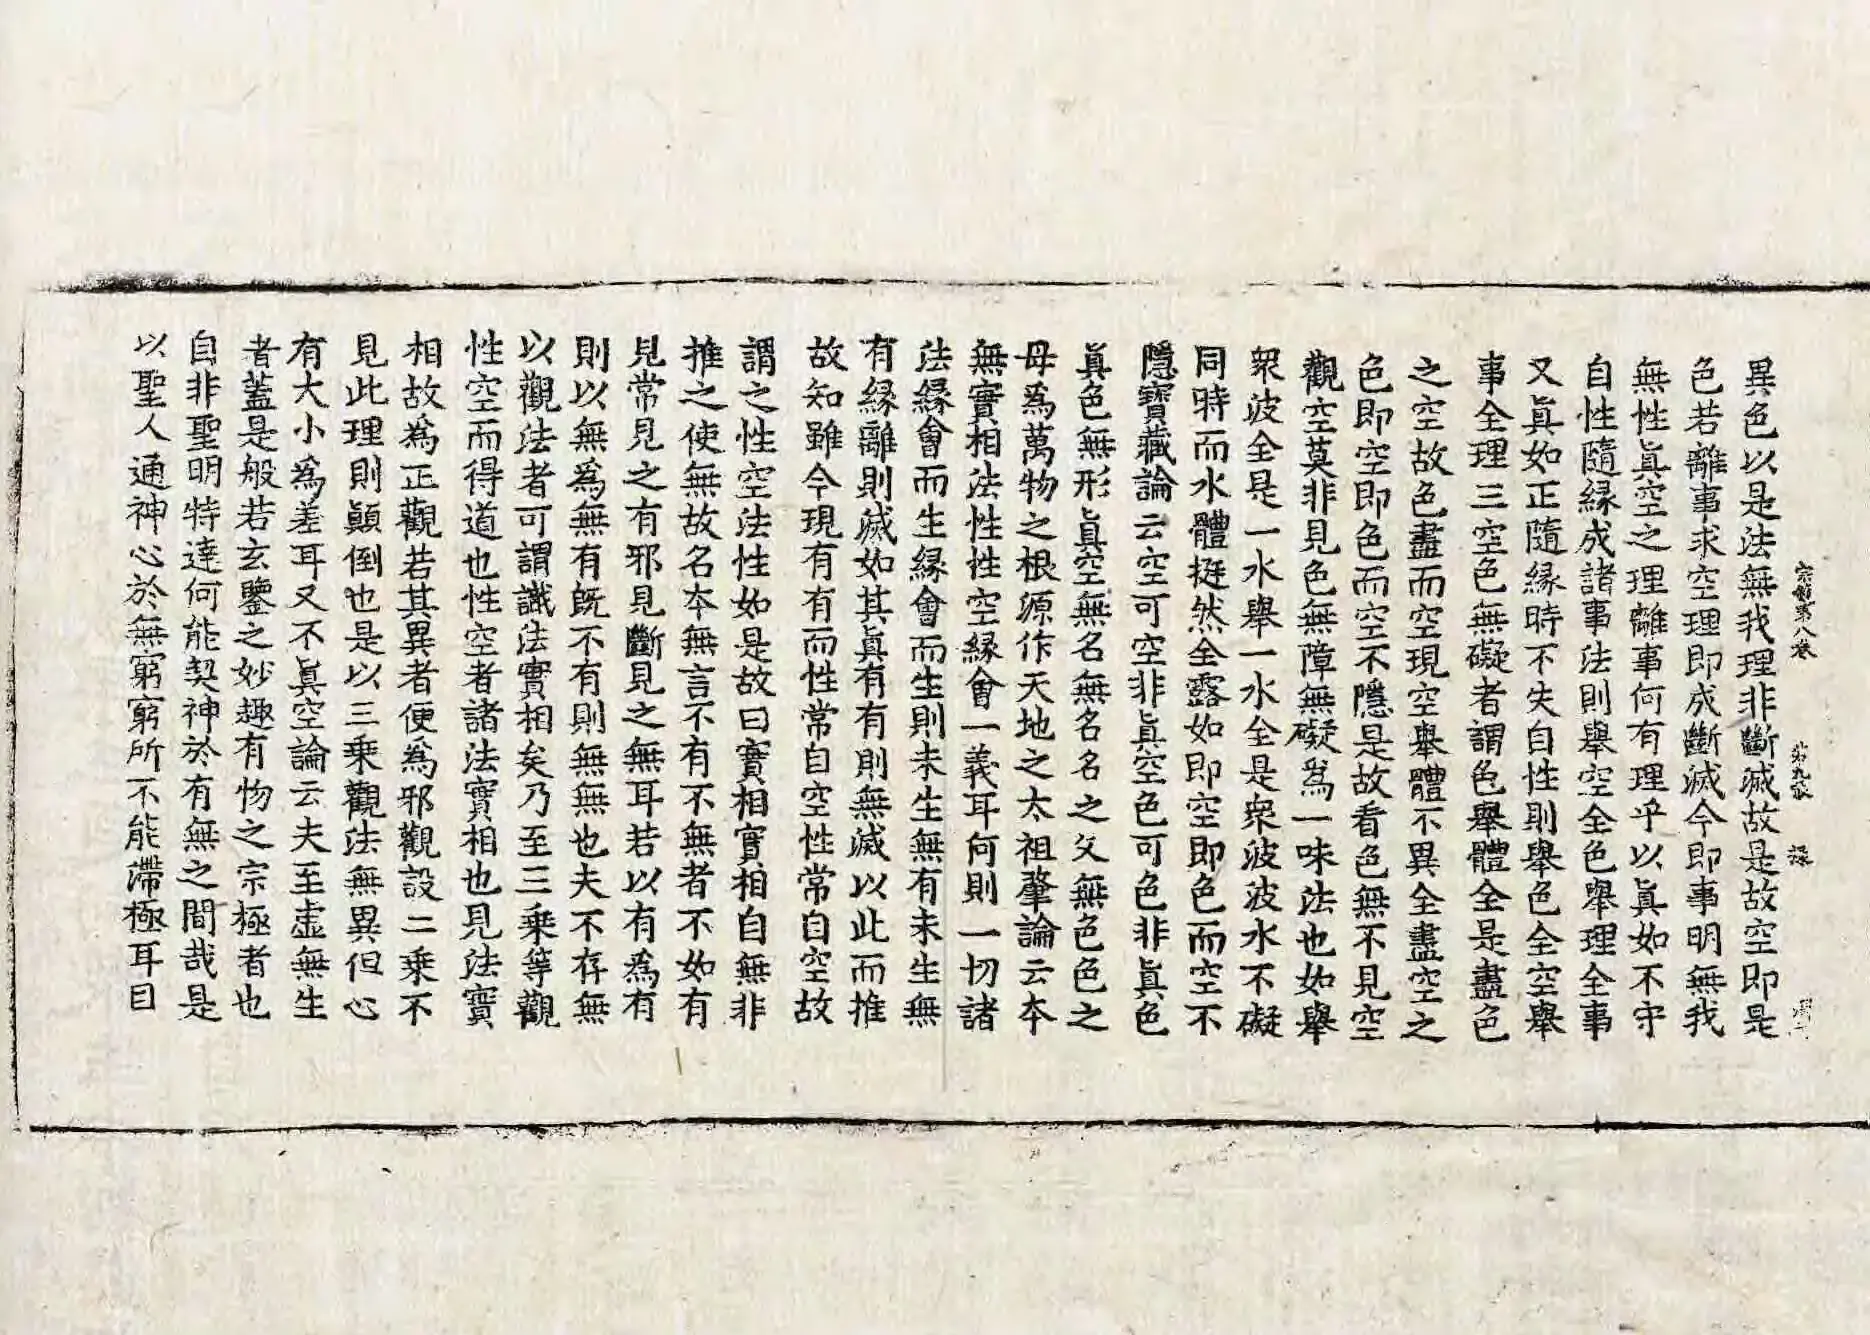 宗鏡第八卷 第九張 祿
異色以是法無我理非斷滅故是故空即是
色若離事求空理即成斷滅今即事明無我
無性眞空之理離事何有理乎以眞如不守
自性隨緣成諸事法則舉空全色舉理全事
又眞如正隨緣時不失自性則舉色全空舉
事全理三空色無礙者謂色舉體全是盡色
之空故色盡而空現空舉體不異全盡空之
色即空即色而空不隱是故看色無不見空
觀空莫非見色無障無礙爲一味法也如舉
衆波全是一水舉一水全是衆波波水不礙
同時而水體挺然全露如即空即色而空不
隱寶藏論云空可空非眞空色可色非眞色
眞色無形眞空無名無名名之父無色色之
母爲萬物之根源作天地之太祖肇論云本
無實相法性性空緣會一義耳何則一切諸
法緣會而生緣會而生則未生無有未生無
有緣離則滅如其眞有有則無滅以此而推
故知雖今現有有而性常自空性常自空故
謂之性空法性如是故曰實相實相自無非
推之使無故名本無言不有不無者不如有
見常見之有邪見斷見之無耳若以有爲有
則以無爲無有旣不有則無無也夫不存無
以觀法者可謂識法實相矣乃至三乘等觀
性空而得道也性空者諸法實相也見法實
相故爲正觀若其異者便爲邪觀設二乘不
見此理則顚倒也是以三乘觀法無異但心
有大小爲差耳又不眞空論云夫至虛無生
者蓋是般若玄鑒之妙趣有物之宗極者也
自非聖明特達何能契神於有無之間哉是
以聖人通神心於無窮窮所不能滯極耳目